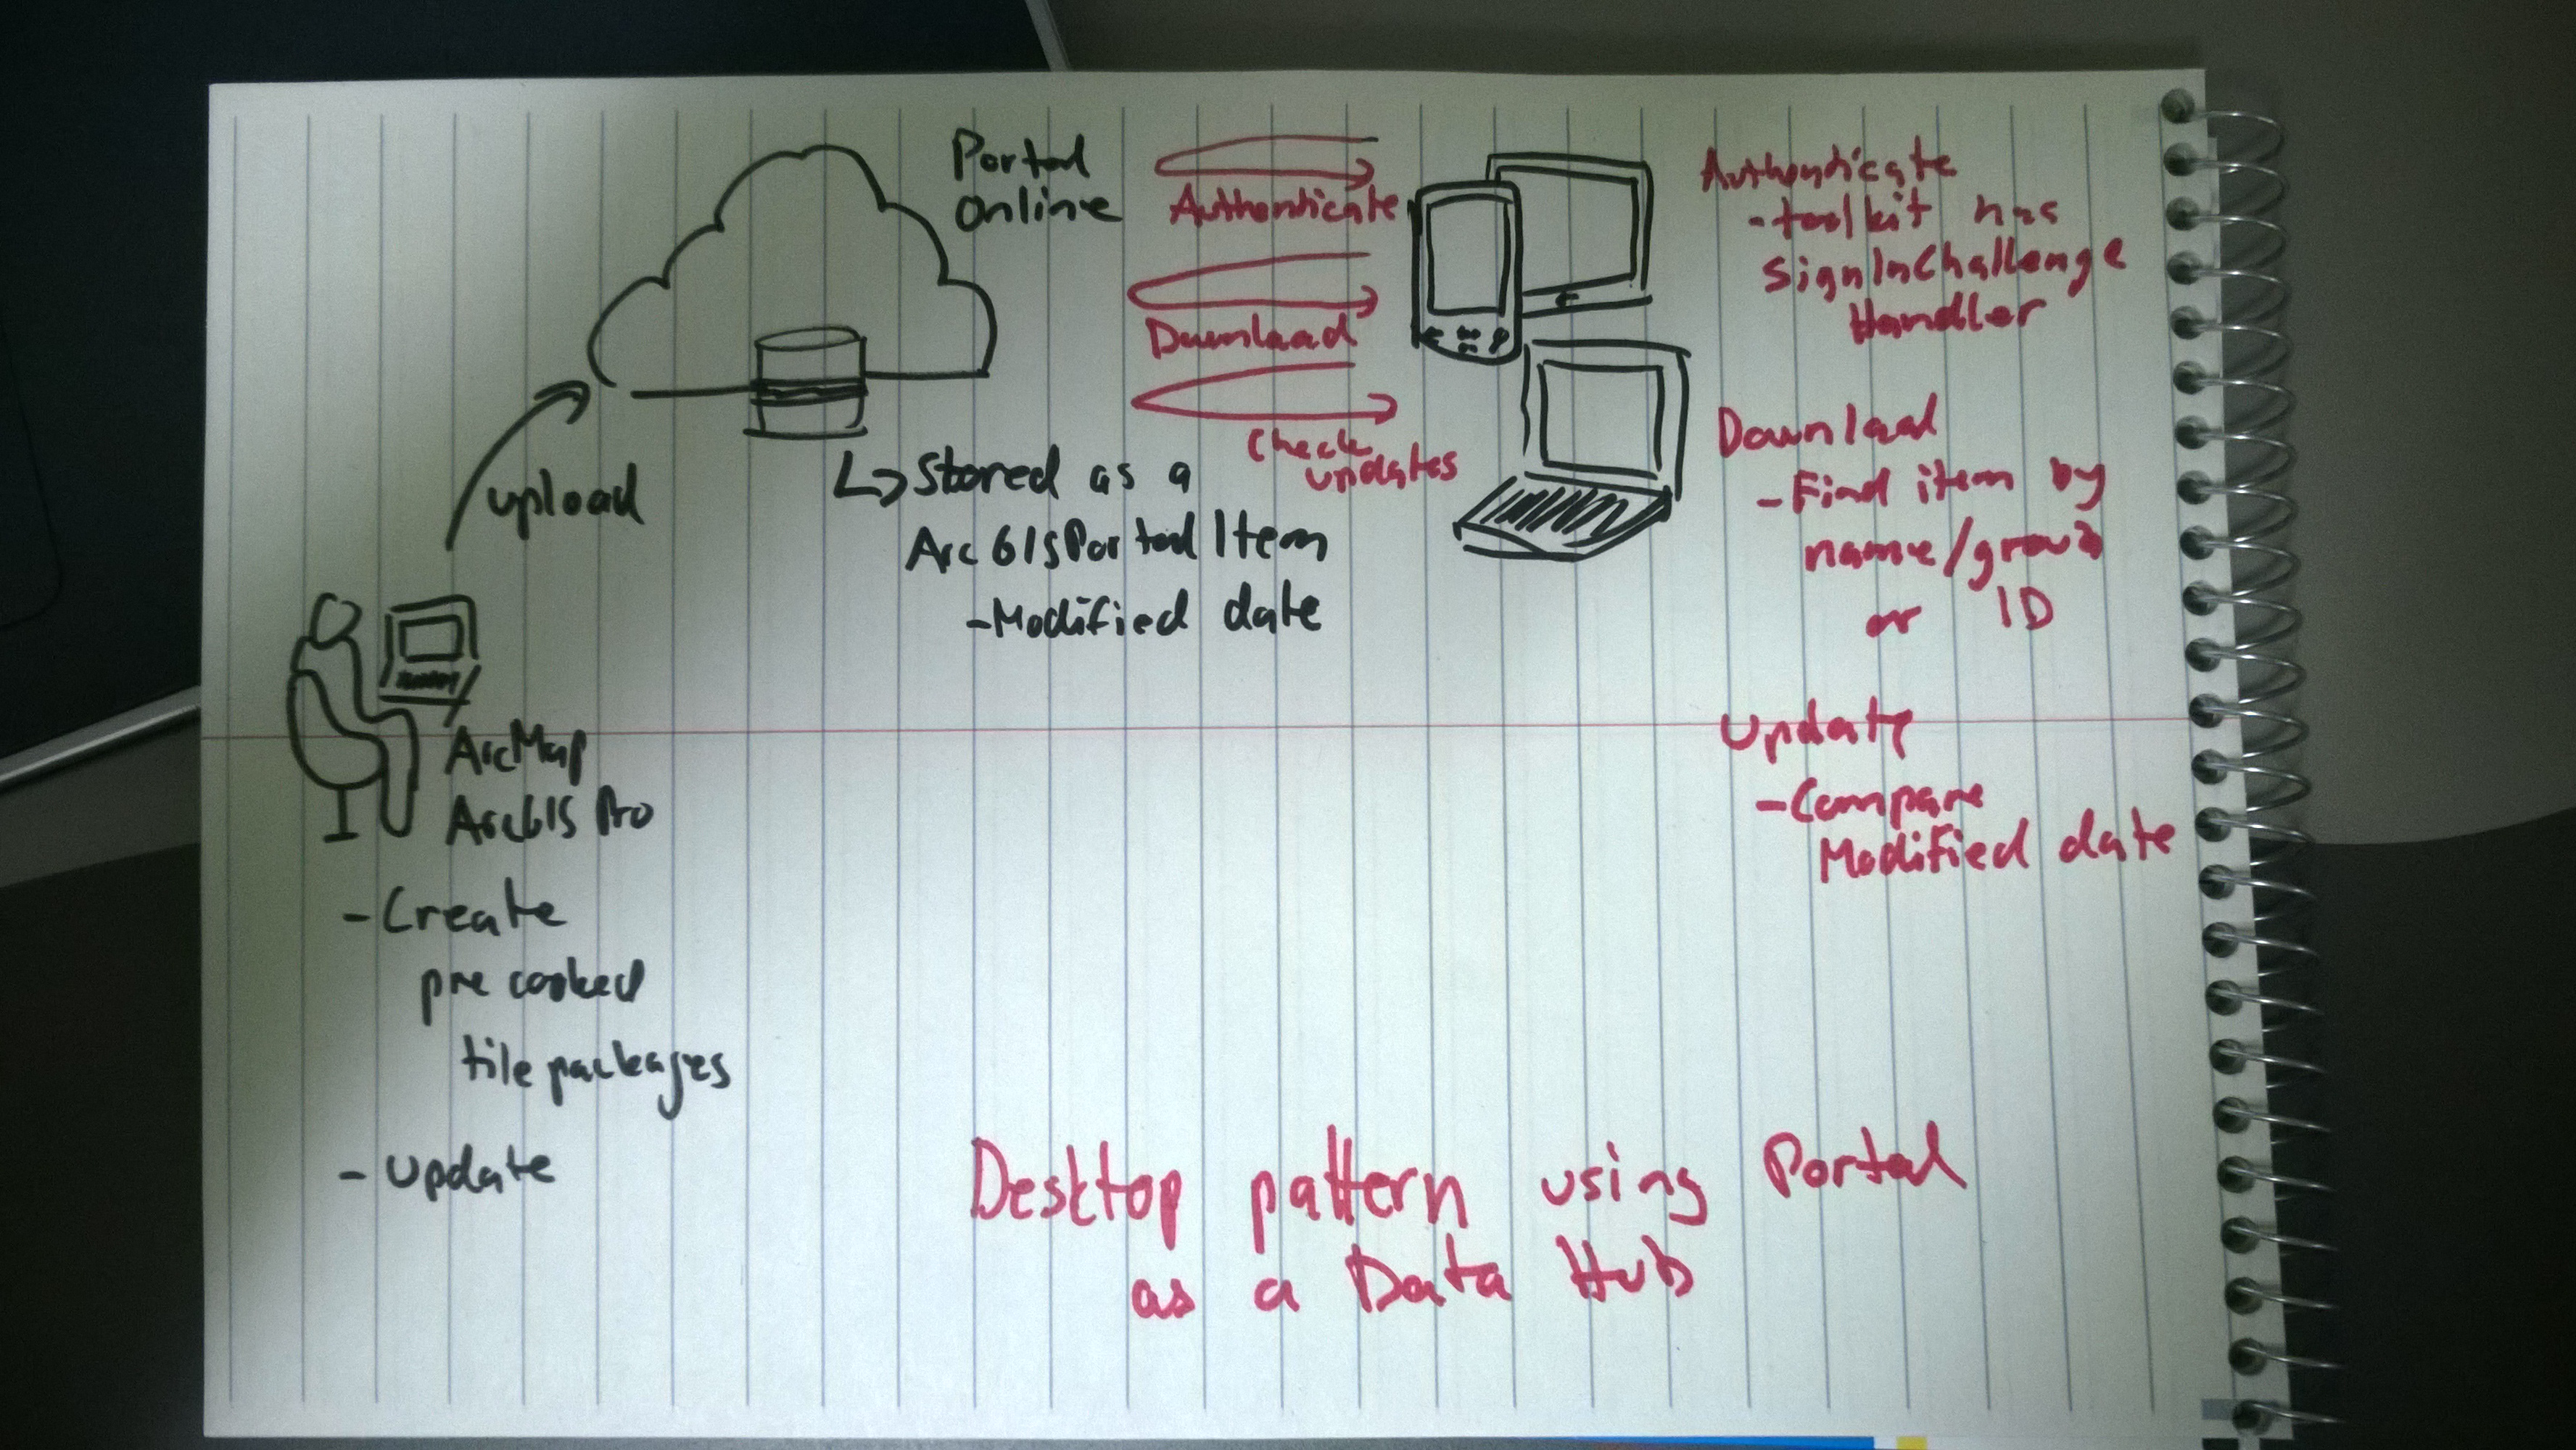 Portal
online
Authenticate
Download
Check
updates
upload
Stored as a
ArcGISPortalItem
- Modified date
ArcMap
ArcGIS Pro
- Create
pre cooked
tile packages
- update
Authenticate
- toolkit has
SignInChallenge
Handler
Download
- Find item by
name/group
or ID
Update
- Compare
Modified date
Desktop pattern using Portal
as a Data Hub